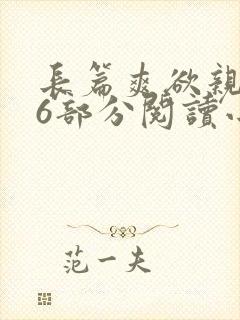 長篇爽欲親
6部分閱讀小
范一夫